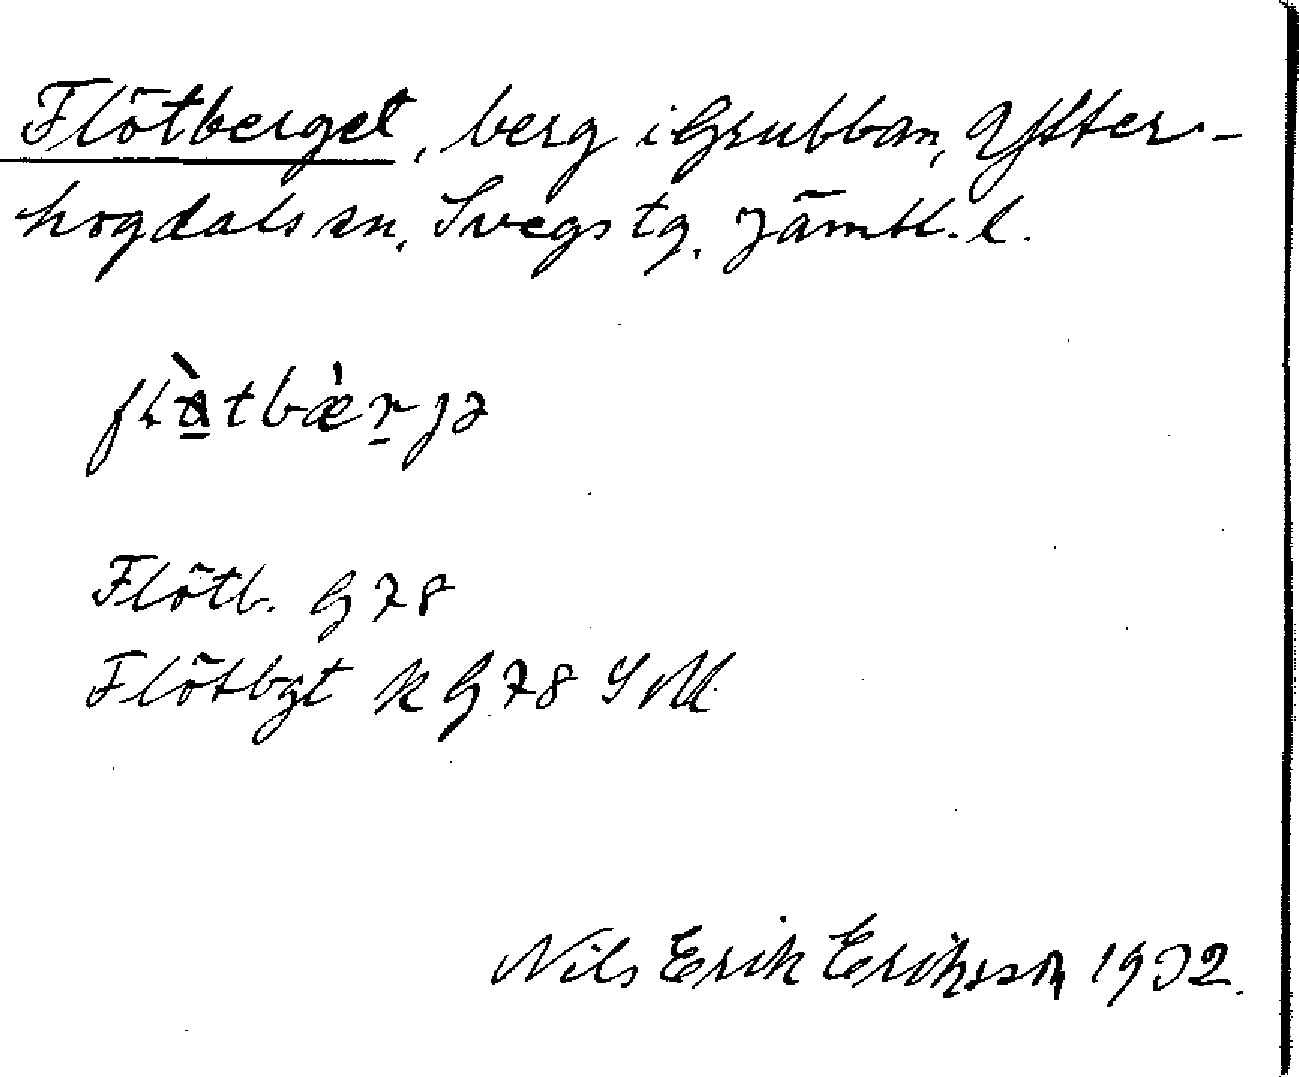 Flötberget, berg i Grubban, Ytter-
hogdals sn, Svegs tg, Jämtl. l.
Flötb. G 78
Flötbgt k G 78 SM
Nils Erik Eriksson 1932.